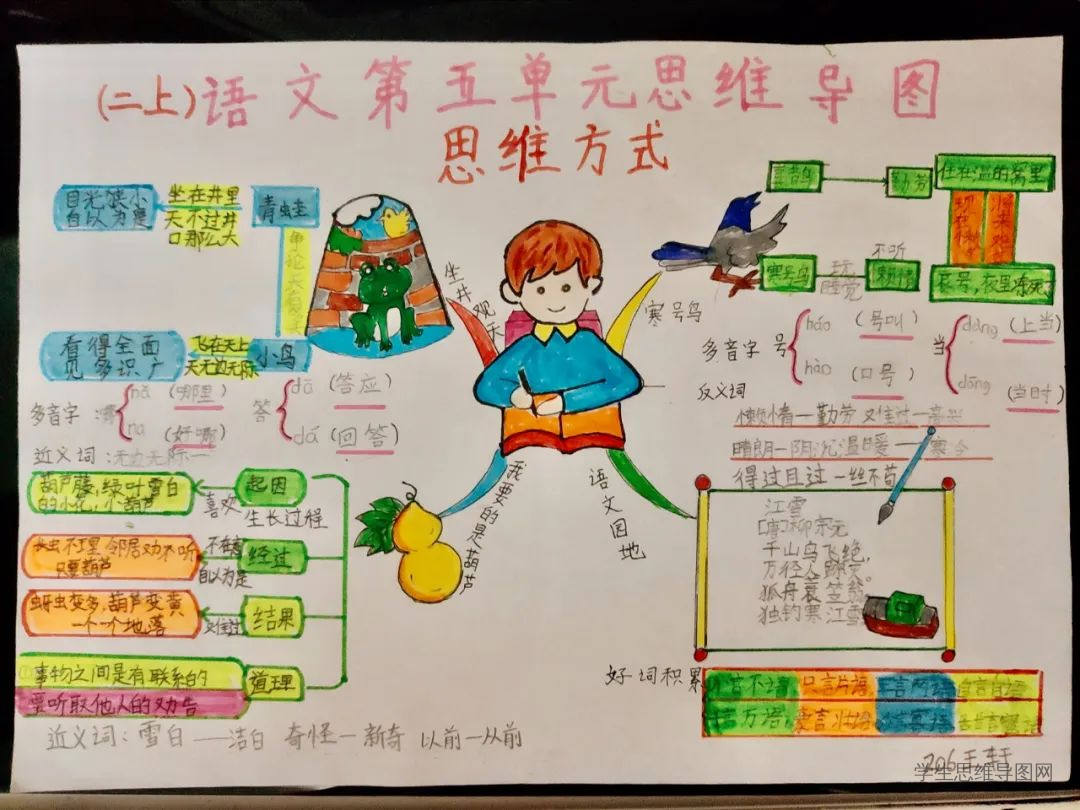 (二上)语文第五单元思维导图
思维方式
目光狭小
自以为是
坐在井里
天不过井
口那么大
青蛙
争论天有多大
看得全面
见多识广
飞在天上
天无边无际
小鸟
多音字
哪
nǎ (哪里)
na (好哪)
答
dā (答应)
dá (回答)
近义词:无边无际一
坐井观天
寒号鸟
喜鹊
勤劳
住在温的窝里
寒号鸟
玩
睡觉
不听
懒惰
哀号,夜里冻死了
多音字 号
háo (号叫)
hào (口号)
当
dāng (上当)
dāng (当日时)
反义词
懒惰一勤劳 难过一高兴
晴朗一阴沉 温暖一寒冷
得过且过一丝不苟
葫芦藤,绿叶雪白
的小花,小葫芦
喜欢
起因
生长过程
虫不理 邻居劝不听
只要葫芦
不在意
自以为是
经过
蚜虫变多,葫芦变黄
一个一个地落
难过
结果
事物之间是有联系的
要听取他人的劝告
道理
近义词:雪白一洁白 奇怪一新奇 以前一从前
我要的是葫芦
语文园地
江雪
[唐]柳宗元
千山鸟飞绝,
万径人踪灭。
狐舟蓑笠翁,
独钓寒江雪
好词积累
只言片语
自言自语
豪言壮语
206王轩
学生思维导图网